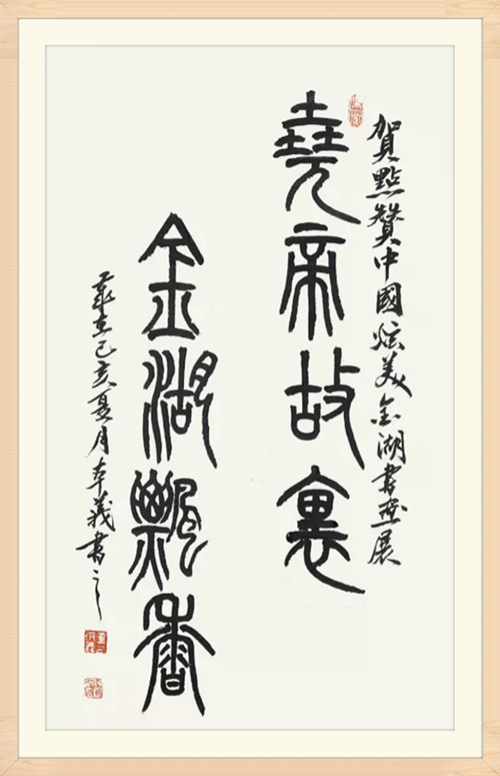 賀點贊中國炫美金湖書畫展
堯帝故裏
金湖飄香
歲在己亥夏月本義書之